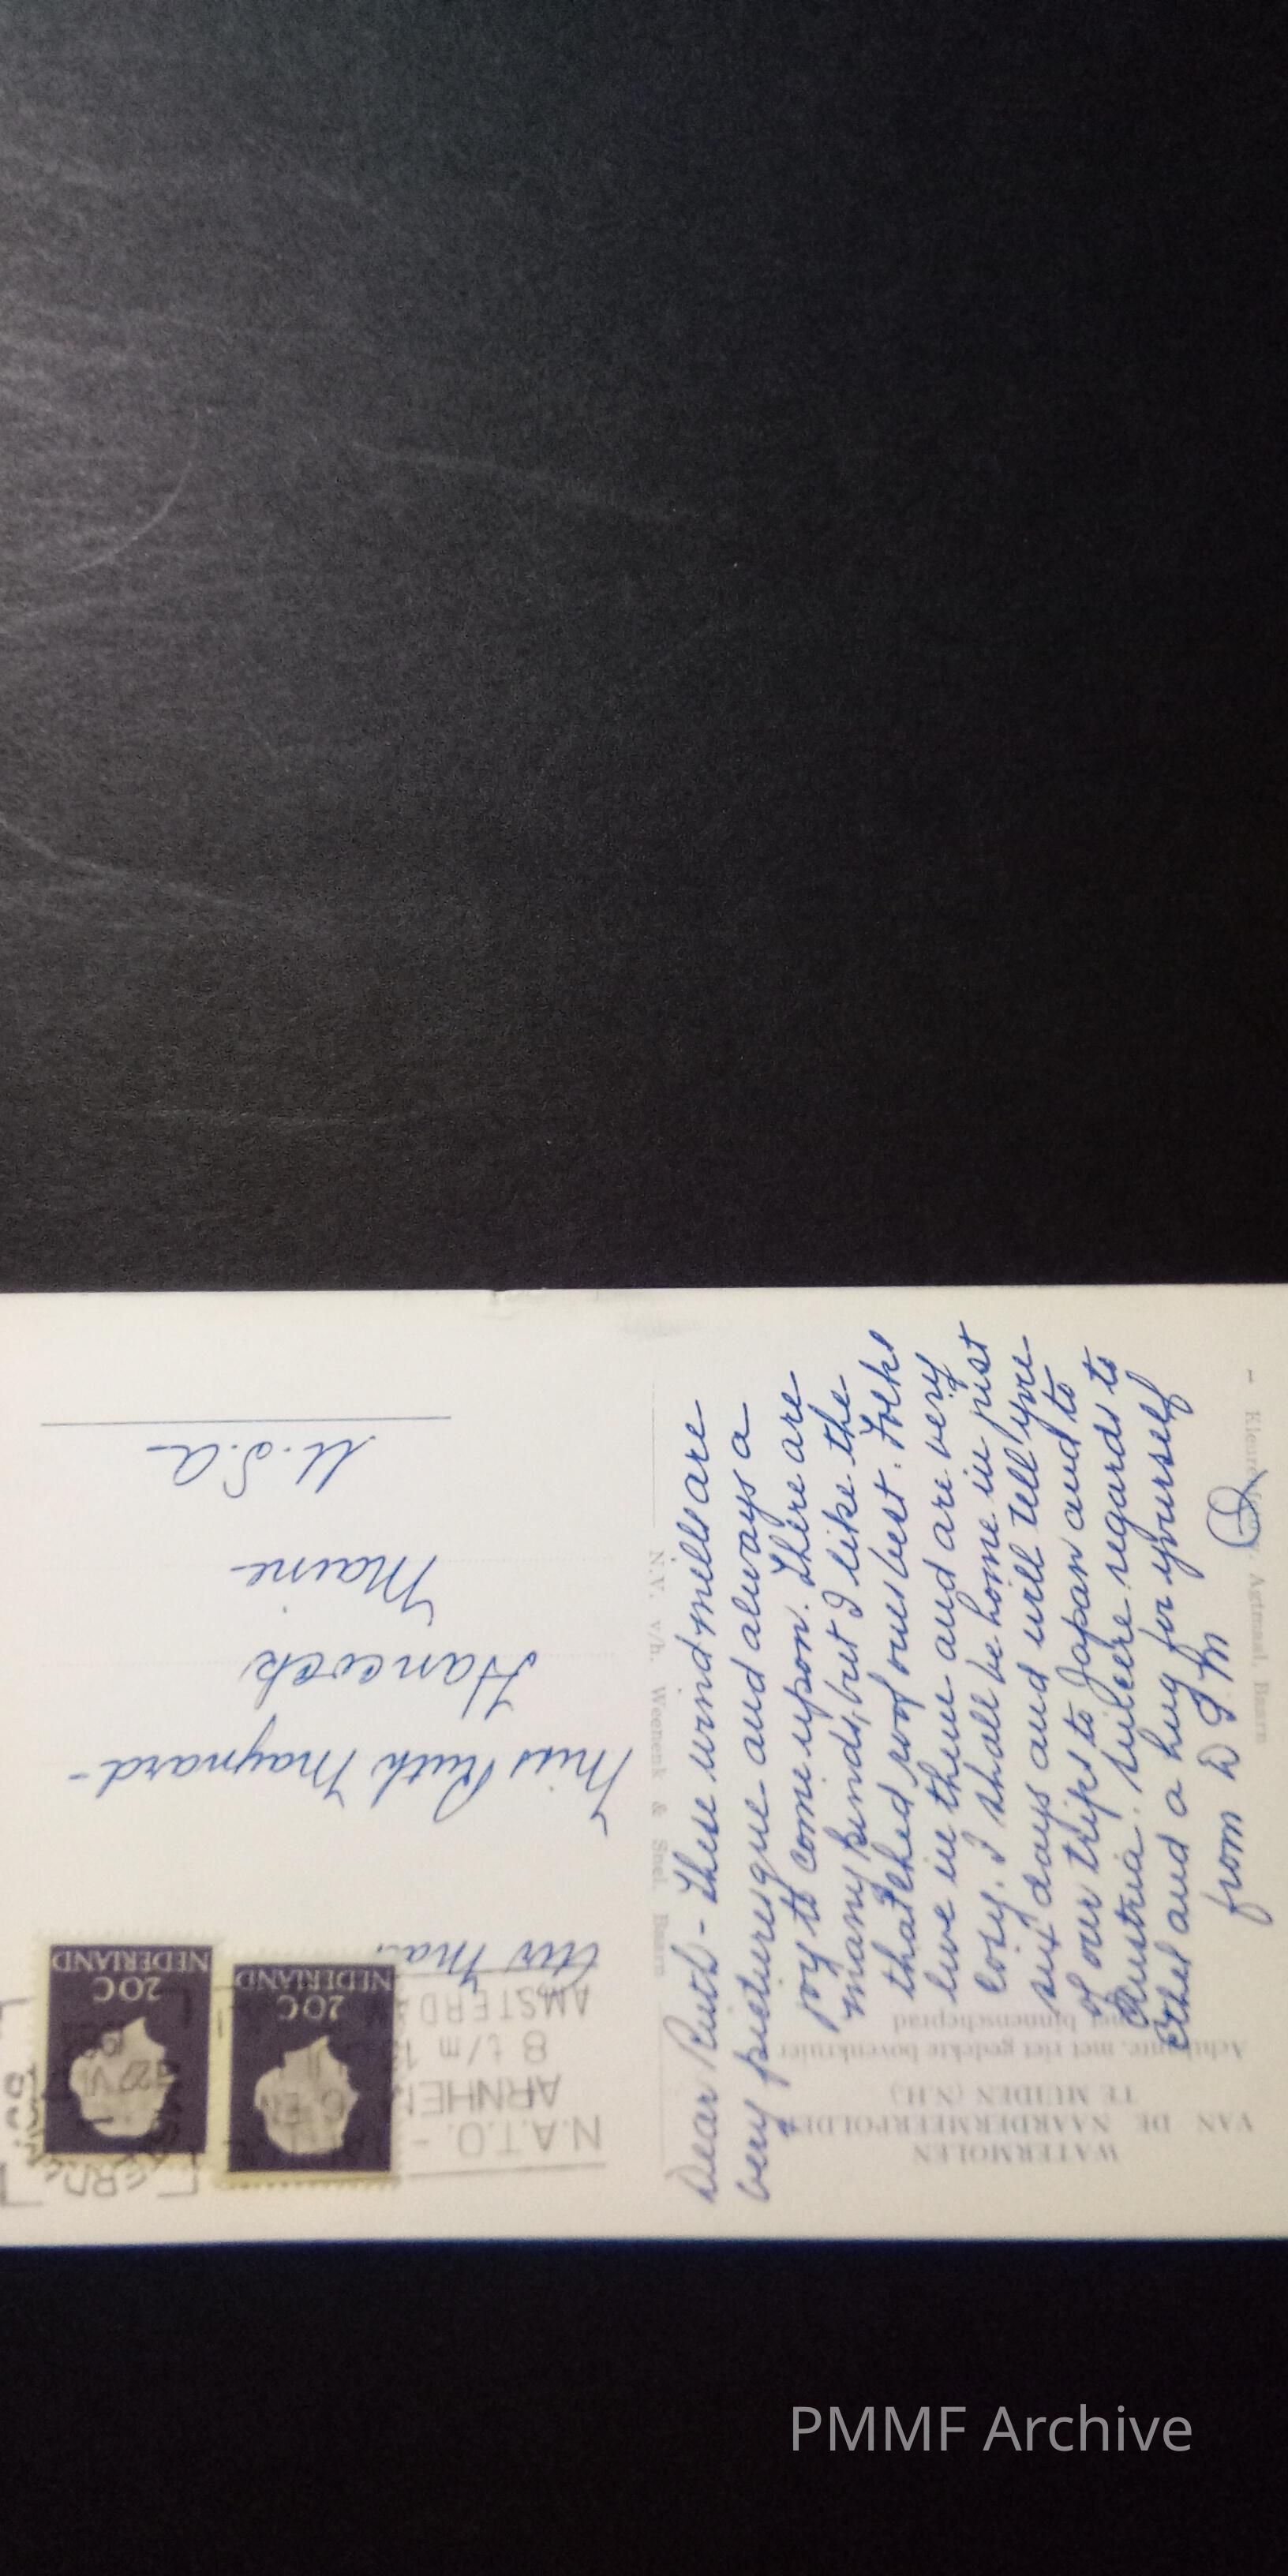 WATERMOLEN
VAN DE NAARDERMEERPOLDER
TE MUIDEN (N.H.)
Achtkante, met riet gedekte bovenkruier
met binnenscheprad
Dear Ruth - These wind mills are
very picturesque and always a
joy to come upon. There are
many kinds, but I like the
thatched roof ones best. Folks
live in them and are very
cosy. I shall be home in just
six days and will tell you
of our trips to Japan and to
Austria. Sincere regards to
Ethel and a hug for yourself
from
N.V. v/h. Weenenk & Snel, Baarn
Agtmaal, Baarn
N.A.T.O. -
ARNHEM
8 t/m 15
AMSTERDA
NEDERLAND
20 C
NEDERLAND
20 C
Miss Ruth Maynard -
Hancock
Maine
U.S.A
PMMF Archive